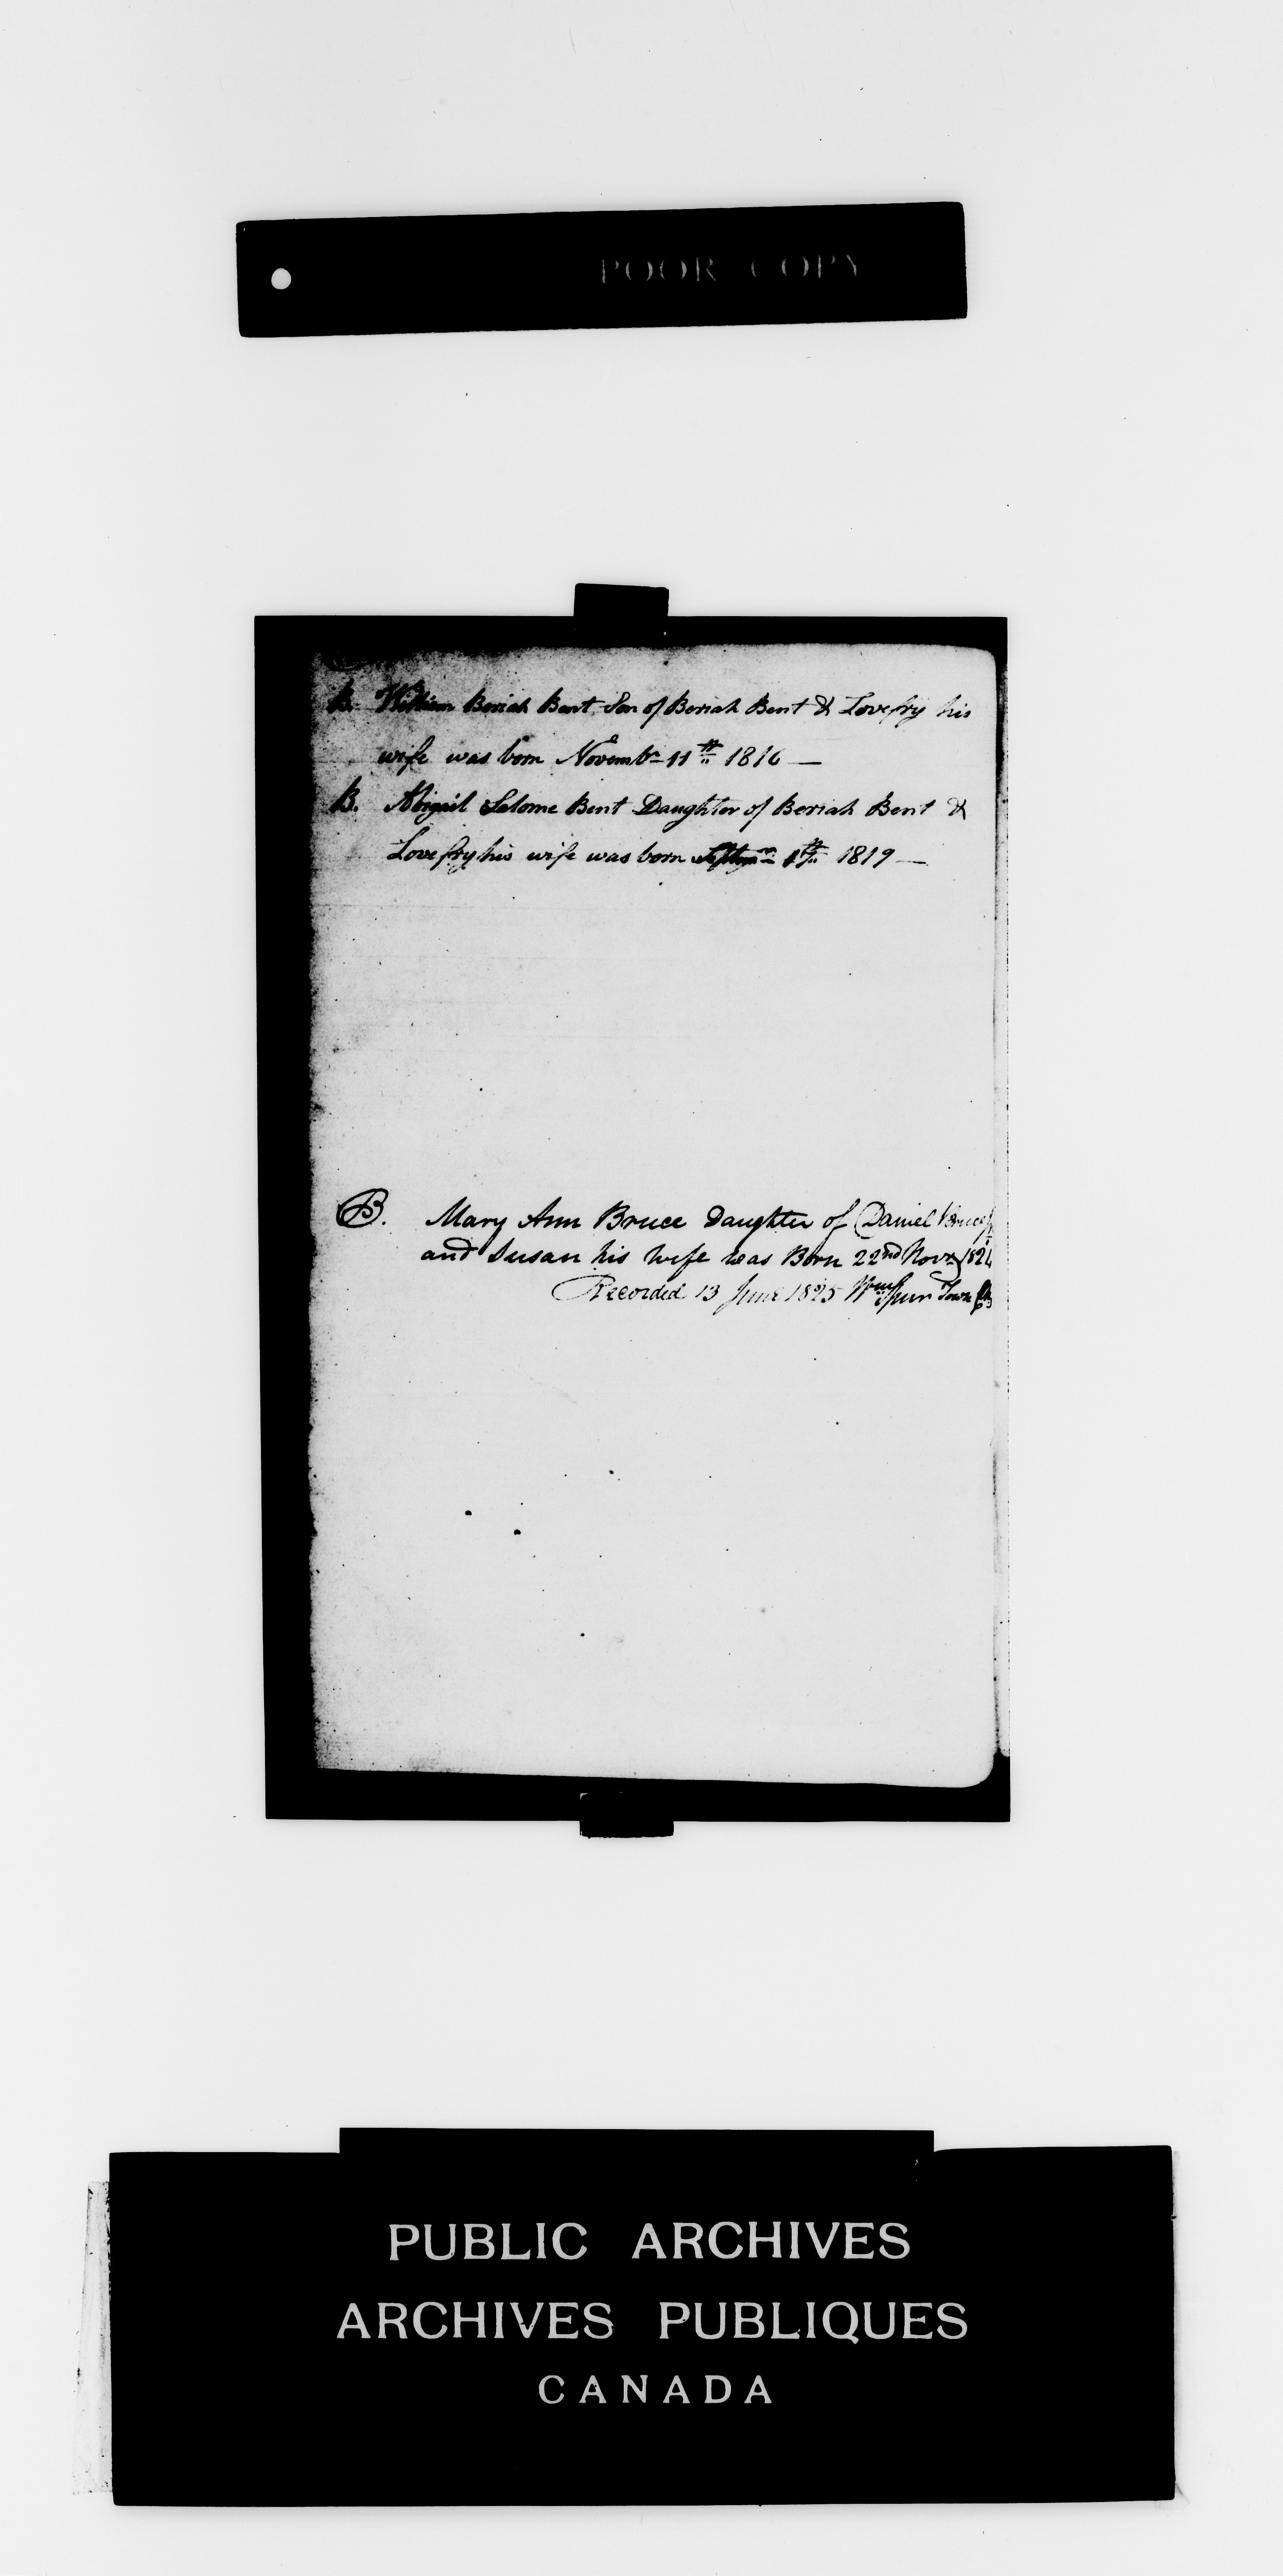 POOR COPY
B. William Beriah Bent Son of Beriah Bent & Lovefry his
wife was born Novembr 11th 1816 —
B. Abigail Salome Bent Daughter of Beriah Bent &
Lovefry his wife was born 1819 —
B. Mary Ann Bruce Daughter of Daniel Bruce
and Susan his Wife was Born 22nd Novr 1824
Recorded 13 June 1825 Wm Spurr Town
PUBLIC ARCHIVES
ARCHIVES PUBLIQUES
CANADA